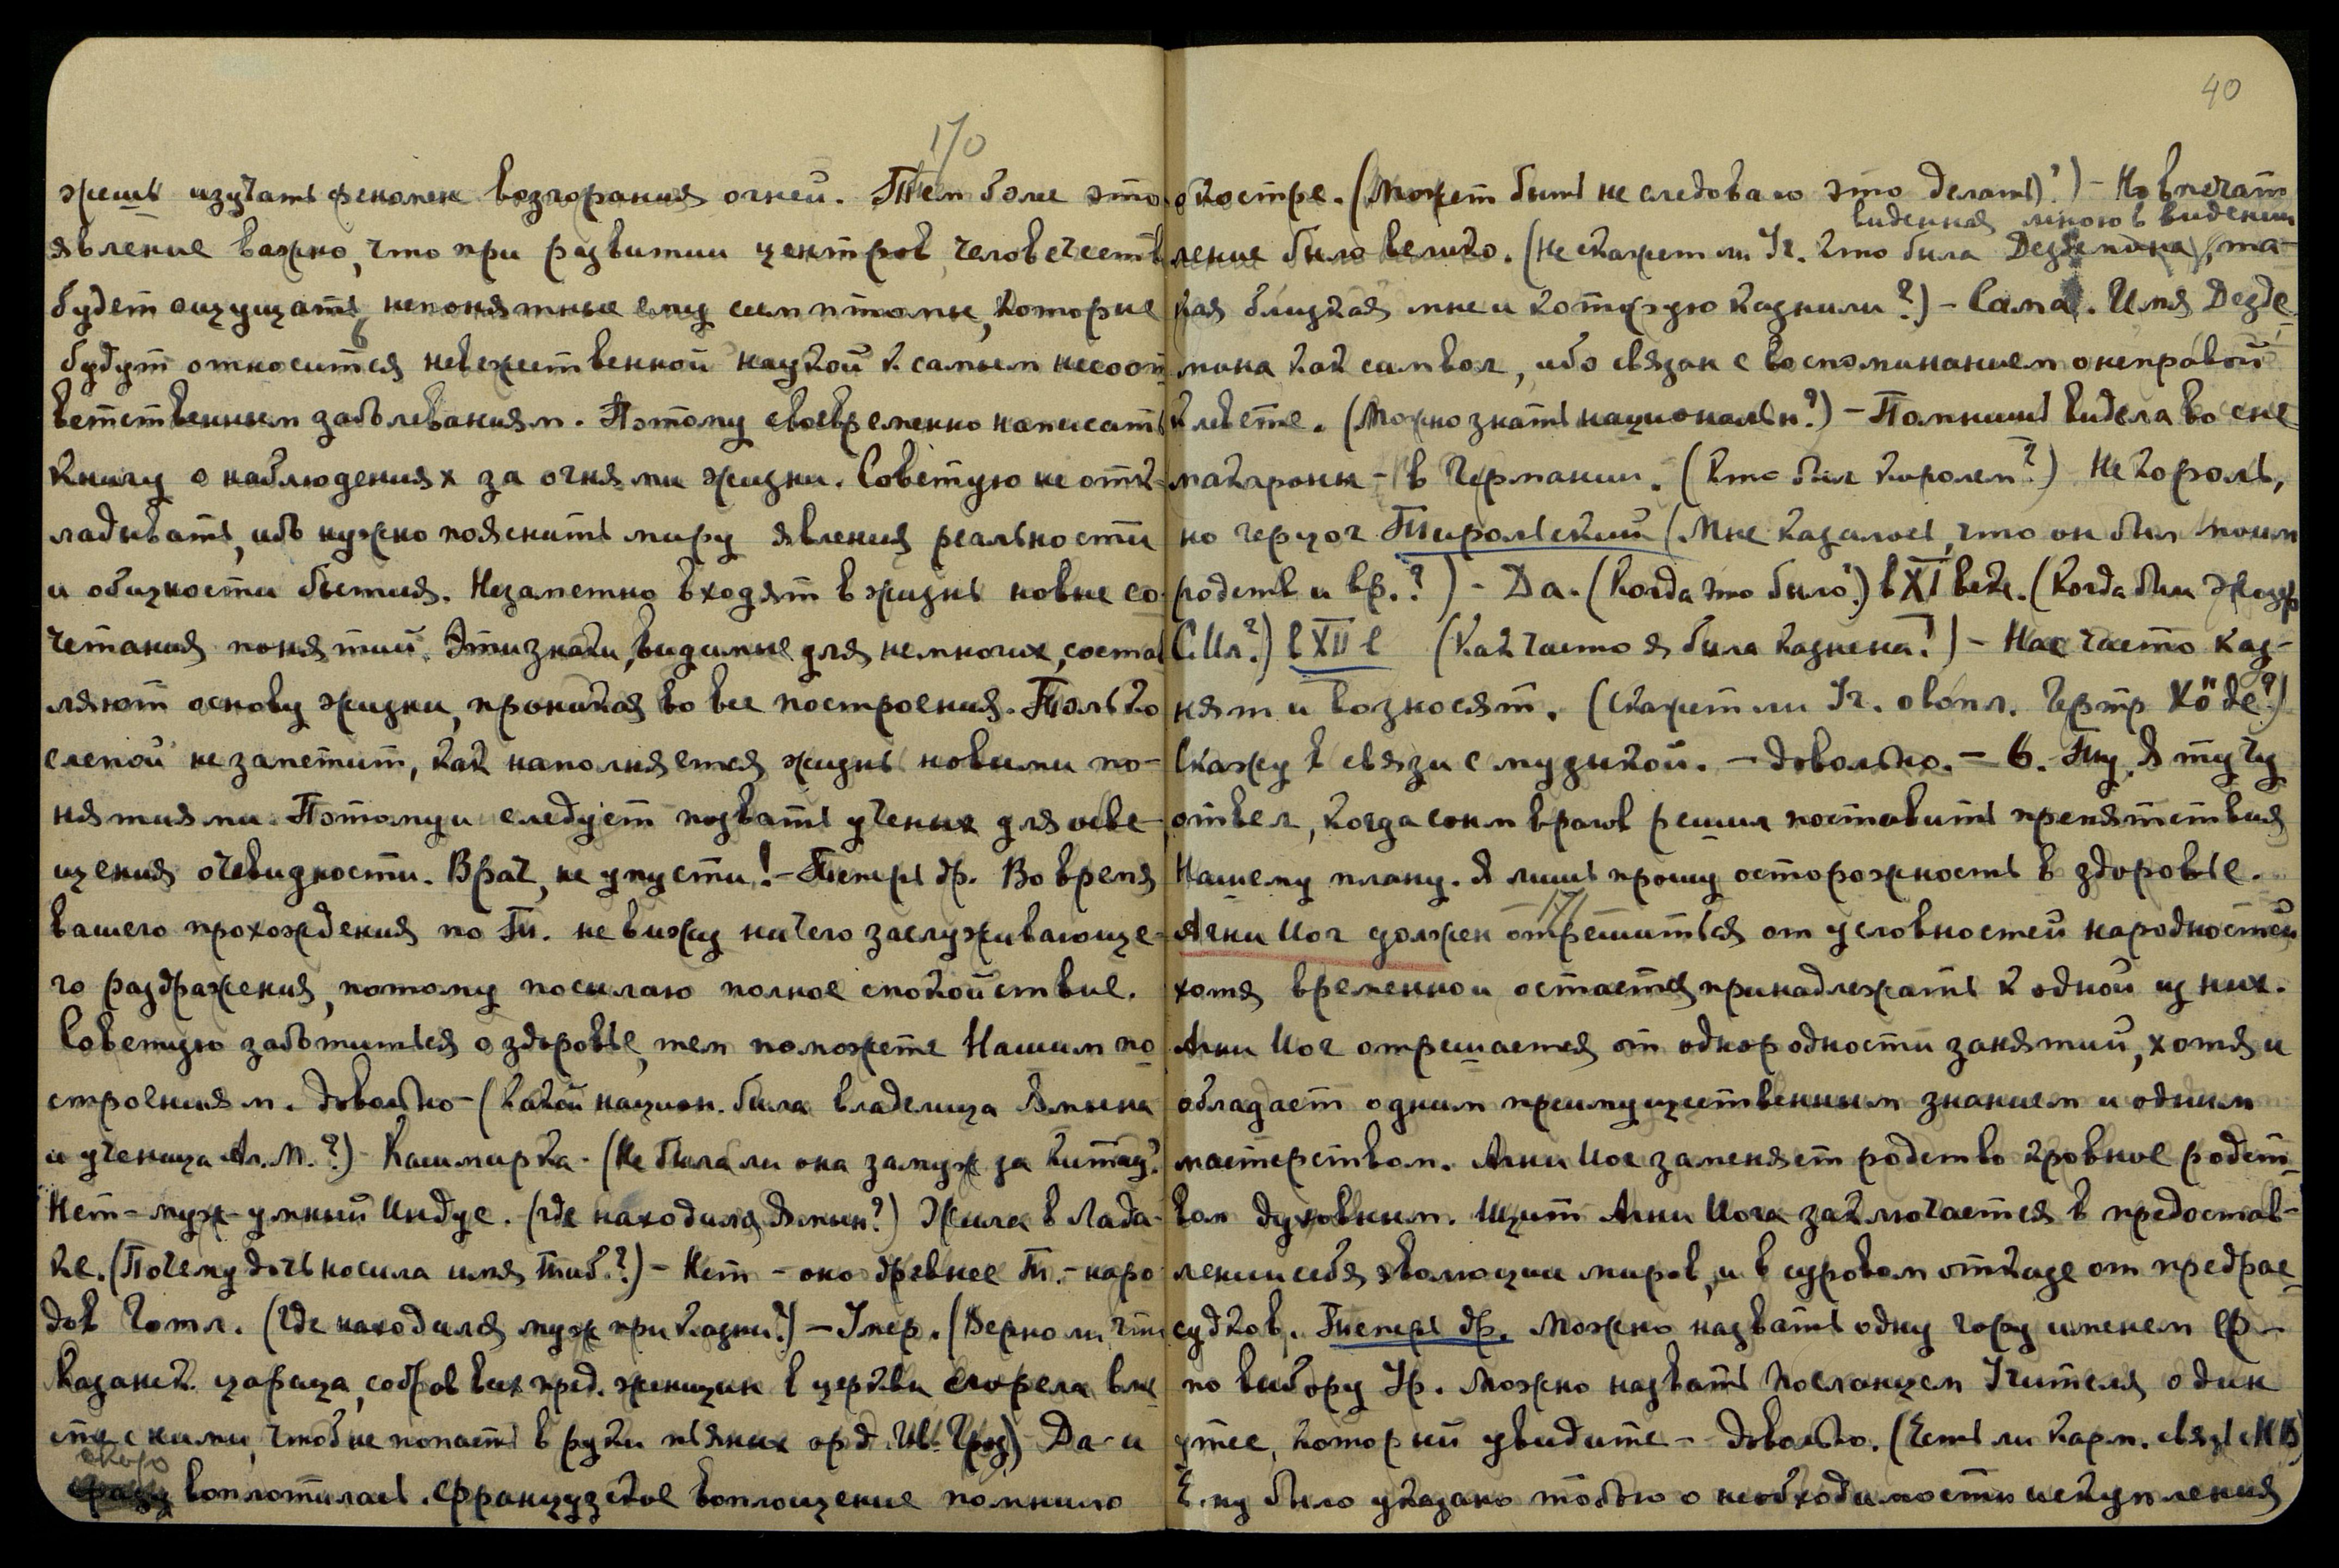 170
жешь изучать феномен возгорания огней. Тем более это
явление важно, что при развитии центров, человечеств
будет ощущать, непонятные ему симптомы, которые
будут относится невежественной наукой к самым несоот-
ветственным заболеваниям. Поэтому своевременно написать
книгу о наблюдениях за огнями жизни. Советую не отк-
ладывать, ибо нужно пояснить миру явления реальности
и общности бытия. Незаметно входят в жизнь новые со-
четания понятий. Эти знаки, видимые для немногих, состав
ляют основу жизни, проникая во все построения. Только
слепой не заметит, как наполняется жизнь новыми по-
нятиями. Потому и следует позвать ученых для осве-
щения очевидности. Врач, не упусти! - Теперь др. Во время
вашего прохождения по Т. не вижу ничего заслуживающе-
го раздражения, потому посылаю полное спокойствие.
Советую заботиться о здоровье, тем поможете Нашим по
строениям. Довольно - (Какой национ. была владелица Ямына
и ученица Ал. М.?) - Кашмирка. - (Не была ли она замуж за китай?
Нет - муж - умный Индус. (где находился Ямын?) Жила в Лада-
ке. (Почему дочь носила имя тиб.?) - Нет - оно древнее Т. - наро
дов Готл. (Где находился муж при казни?) - Умер. (Верно ли что
казанск. царица, собрав всех пред. женщин в церкви сгорела вме
сте с ними, чтоб не попасть в руки пьяных орд. Ив. Гроз) - Да - и
скоро
воплотилась. Французское воплощение помнило
40
о костре. (Может быть не следовало это делать)?) - Но впечат
виденная мною в видении
ление было велико. (Не скажет ли Уч. кто была Дездемона, та-
кая близкая мне и которую казнили?) - Сама. Имя Дезде-
мона как символ, ибо связан с воспоминанием о неправой
клевете. (Можно знать националь н?) - Помнишь видела во сне
макароны - в Германии. (Кто был королем?) Не король,
но герцог Тирольский (Мне казалось, что он был моим
родств и вр.?) - Да. (Когда это было?) в XI веке. (Когда был
С. Ил.?) в XII в (Как часто я была казнена!) - Нас часто каз-
нят и возносят. (скажет ли Уч. о вопл. Гертр
Скажу в связи с музыкой. - Довольно. - 6. Пну. Я тучу
отвел, когда сонм врагов решил поставить препятствия
Нашему плану. Я лишь прошу осторожность в здоровье.
171
Агни Йог должен отрешиться от условностей народностей
хотя временно и остается принадлежать к одной из них.
Агни Йог отрешается от однородности занятий, хотя и
обладает одним преимущественным знанием и одним
мастерством. Агни Йог заменяет родство кровное родст-
вом духовным. Щит Агни Йога заключается в предостав-
лении себя эволюции миров, и в суровом отказе от предрас-
судков. Теперь др. Можно назвать одну гору именем Ф -
по выбору Ур. Можно назвать Посланцем Учителя один
утес, который увидите - Довольно. (Есть ли карм. связь с МВ)
Е. му было указано тобою о необходимости искупления